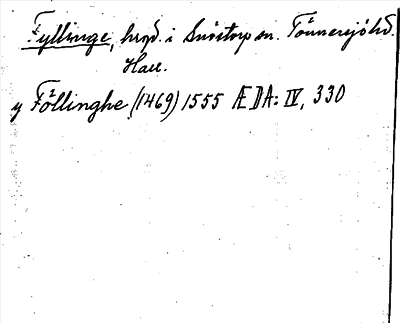 Fyllinge, hrgd. i Snöstorp sn. Tönnersjö hd.
Hall.
y Föllinghe (1469) 1555 ÆDA: IV, 330